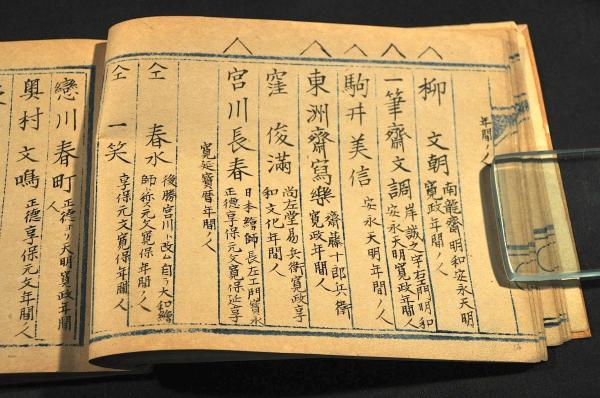 年間ノ人
柳 文朝 南龍齋明和安永天明
寛政年間ノ人
一筆齋文調 岸誠之字右門明和
安永天明寛政年間人
駒井美信 安永天明年間ノ人
東洲齋寫樂 齋藤十郎兵衛
寛政年間人
窪 俊満 尚左堂易兵衛寛政享
和文化年間人
宮川長春 日本繪師長左エ門寳永
正德享保元文寛保延享
寛延寳暦年間ノ人
仝 春水 後勝宮川ト改ム自ラ大和繪
師ト称元文寛保年間ノ人
仝 一笑 享保元文寛保年間人
戀川春町 正德ヨリ天明寛政年間
人
奥村文鳴 正德享保元文年間人